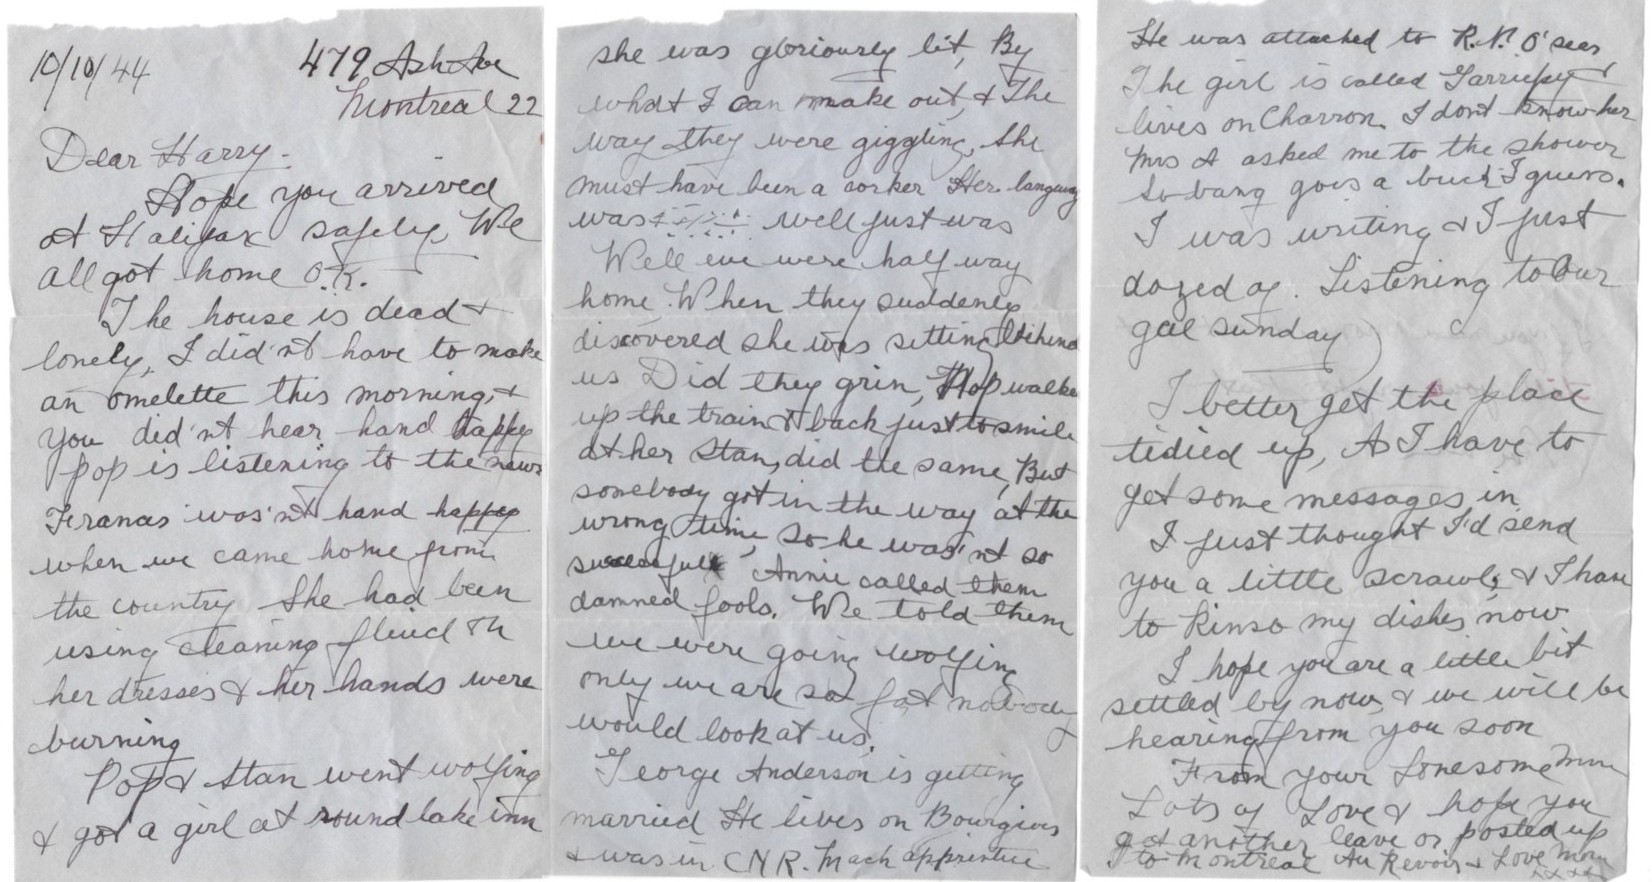 10/10/44 479 Ash Ave
Montreal 22
Dear Harry.
Hope you arrived
at Halifax safely, We
all got home O.K.
The house is dead &
lonely, I did'nt have to make
an omelette this morning, &
you did'nt hear hand happy
pop is listening to the news
Frances was'nt hand happy
when we came home from
the country She had been
using cleaning fluid on
her dresses & her hands were
burning
Pop & Stan went wolfing
& got a girl at round lake inn
she was gloriously lit, By
what I can make out, & The
way they were giggling, she
must have been a corker Her language
was well just was
Well we were half way
home. When they suddenly
discovered she was setting behind
us Did they grin, Pop walked
up the train & back just to smile
at her Stan, did the same, But
somebody got in the way at the
wrong time, so he was'nt so
successful Annie called them
damned fools. We told them
we were going wolfing
only we are so fat nobody
would look at us.
George Anderson is getting
married He lives on Bourgeois
& was in CNR. Mach apprentice
He was attached to R.N. O'seas
The girl is called Garriepy &
lives on Charron. I dont know her
Mrs A asked me to the shower
So bang goes a buck I guess.
I was writing & I just
dozed of. Listening to Our
gal sunday
I better get the place
tidied up, As I have to
get some messages in
I just thought I'd send
you a little scrawl, & I have
to Rinso my dishes now
I hope you are a little bit
settled by now, & we will be
hearing from you soon
From your Lonesome Mum
Lots of Love & hope you
get another leave or posted up
to Montreal Au Revoir & Love Mom
xxxx